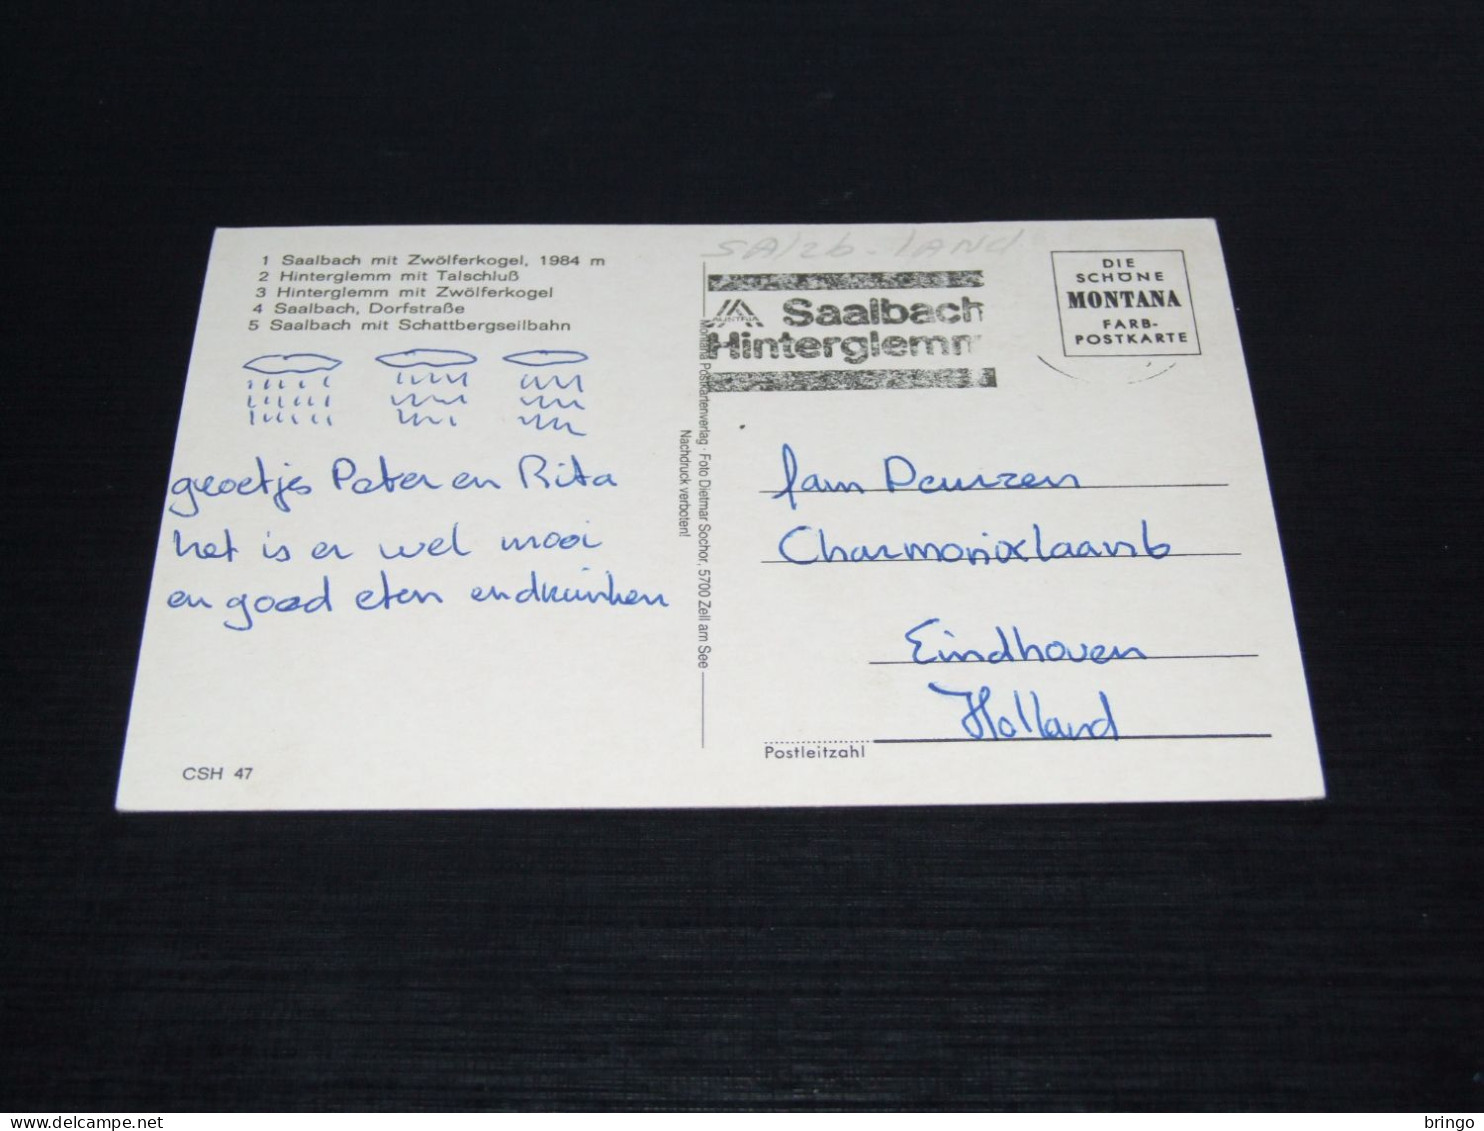 1 Saalbach mit Zwölferkogel, 1984 m
2 Hinterglemm mit Talschluß
3 Hinterglemm mit Zwölferkogel
4 Saalbach, Dorfstraße
5 Saalbach mit Schattbergseilbahn
groetjes Peter en Rita
het is er wel mooi
en goed eten en drinken
CSH 47
Montana Postkartenverlag · Foto Dietmar Sochor, 5700 Zell am See
Nachdruck verboten!
SAlzb-lANd
AUSTRIA
Saalbach
Hinterglemm
DIE
SCHÖNE
MONTANA
FARB-
POSTKARTE
fam Deurzen
Charmonixlaan 6
Eindhoven
Holland
Postleitzahl
bringo